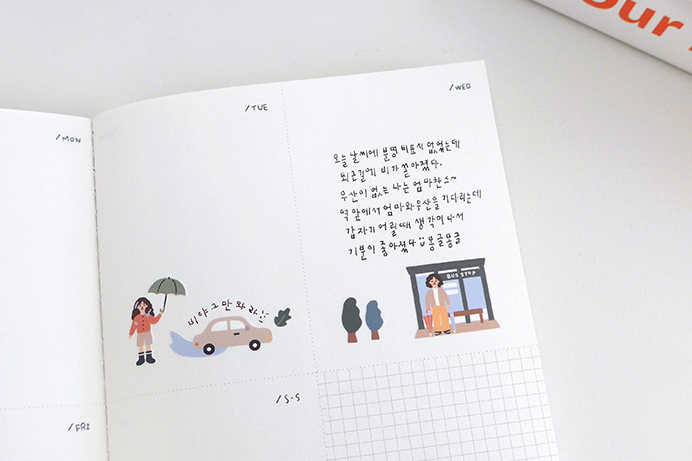 our
/MON
/TUE
/WED
오늘 날씨에 분명 비표시 없었는데
퇴근길에 비가 쏟아졌다.
우산이 없는 나는 엄마찬스~
역 앞에서 엄마와 우산을 기다리는데
갑자기 어릴때 생각이 나서
기분이 좋아졌다 :) 몽글몽글
비야 그만 와라!
BUS STOP
/FRI
/S·S